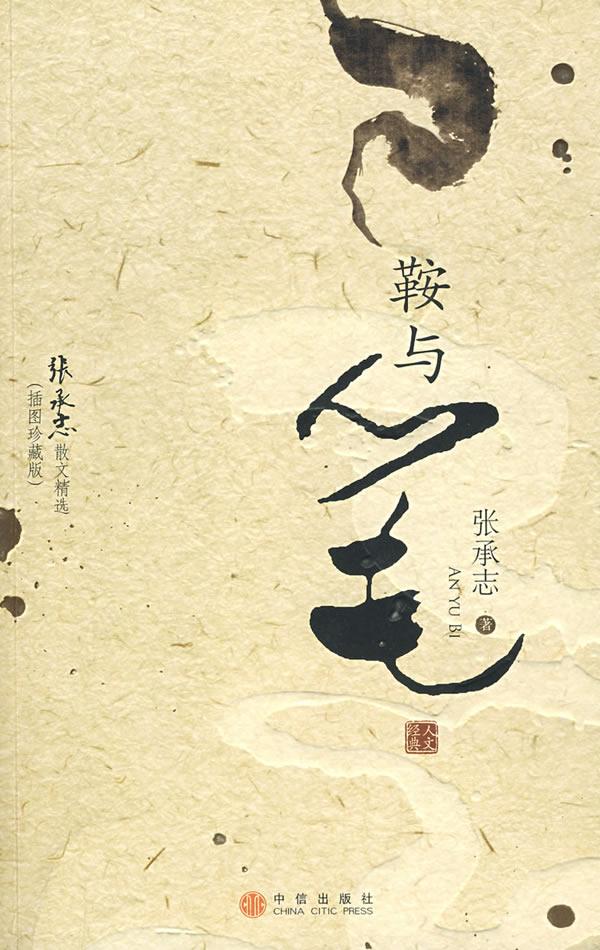 鞍与笔
张承志
著
AN YU BI
人文
经典
張承志散文精选
(插图珍藏版)
中信出版社
CHINA CITIC PRESS